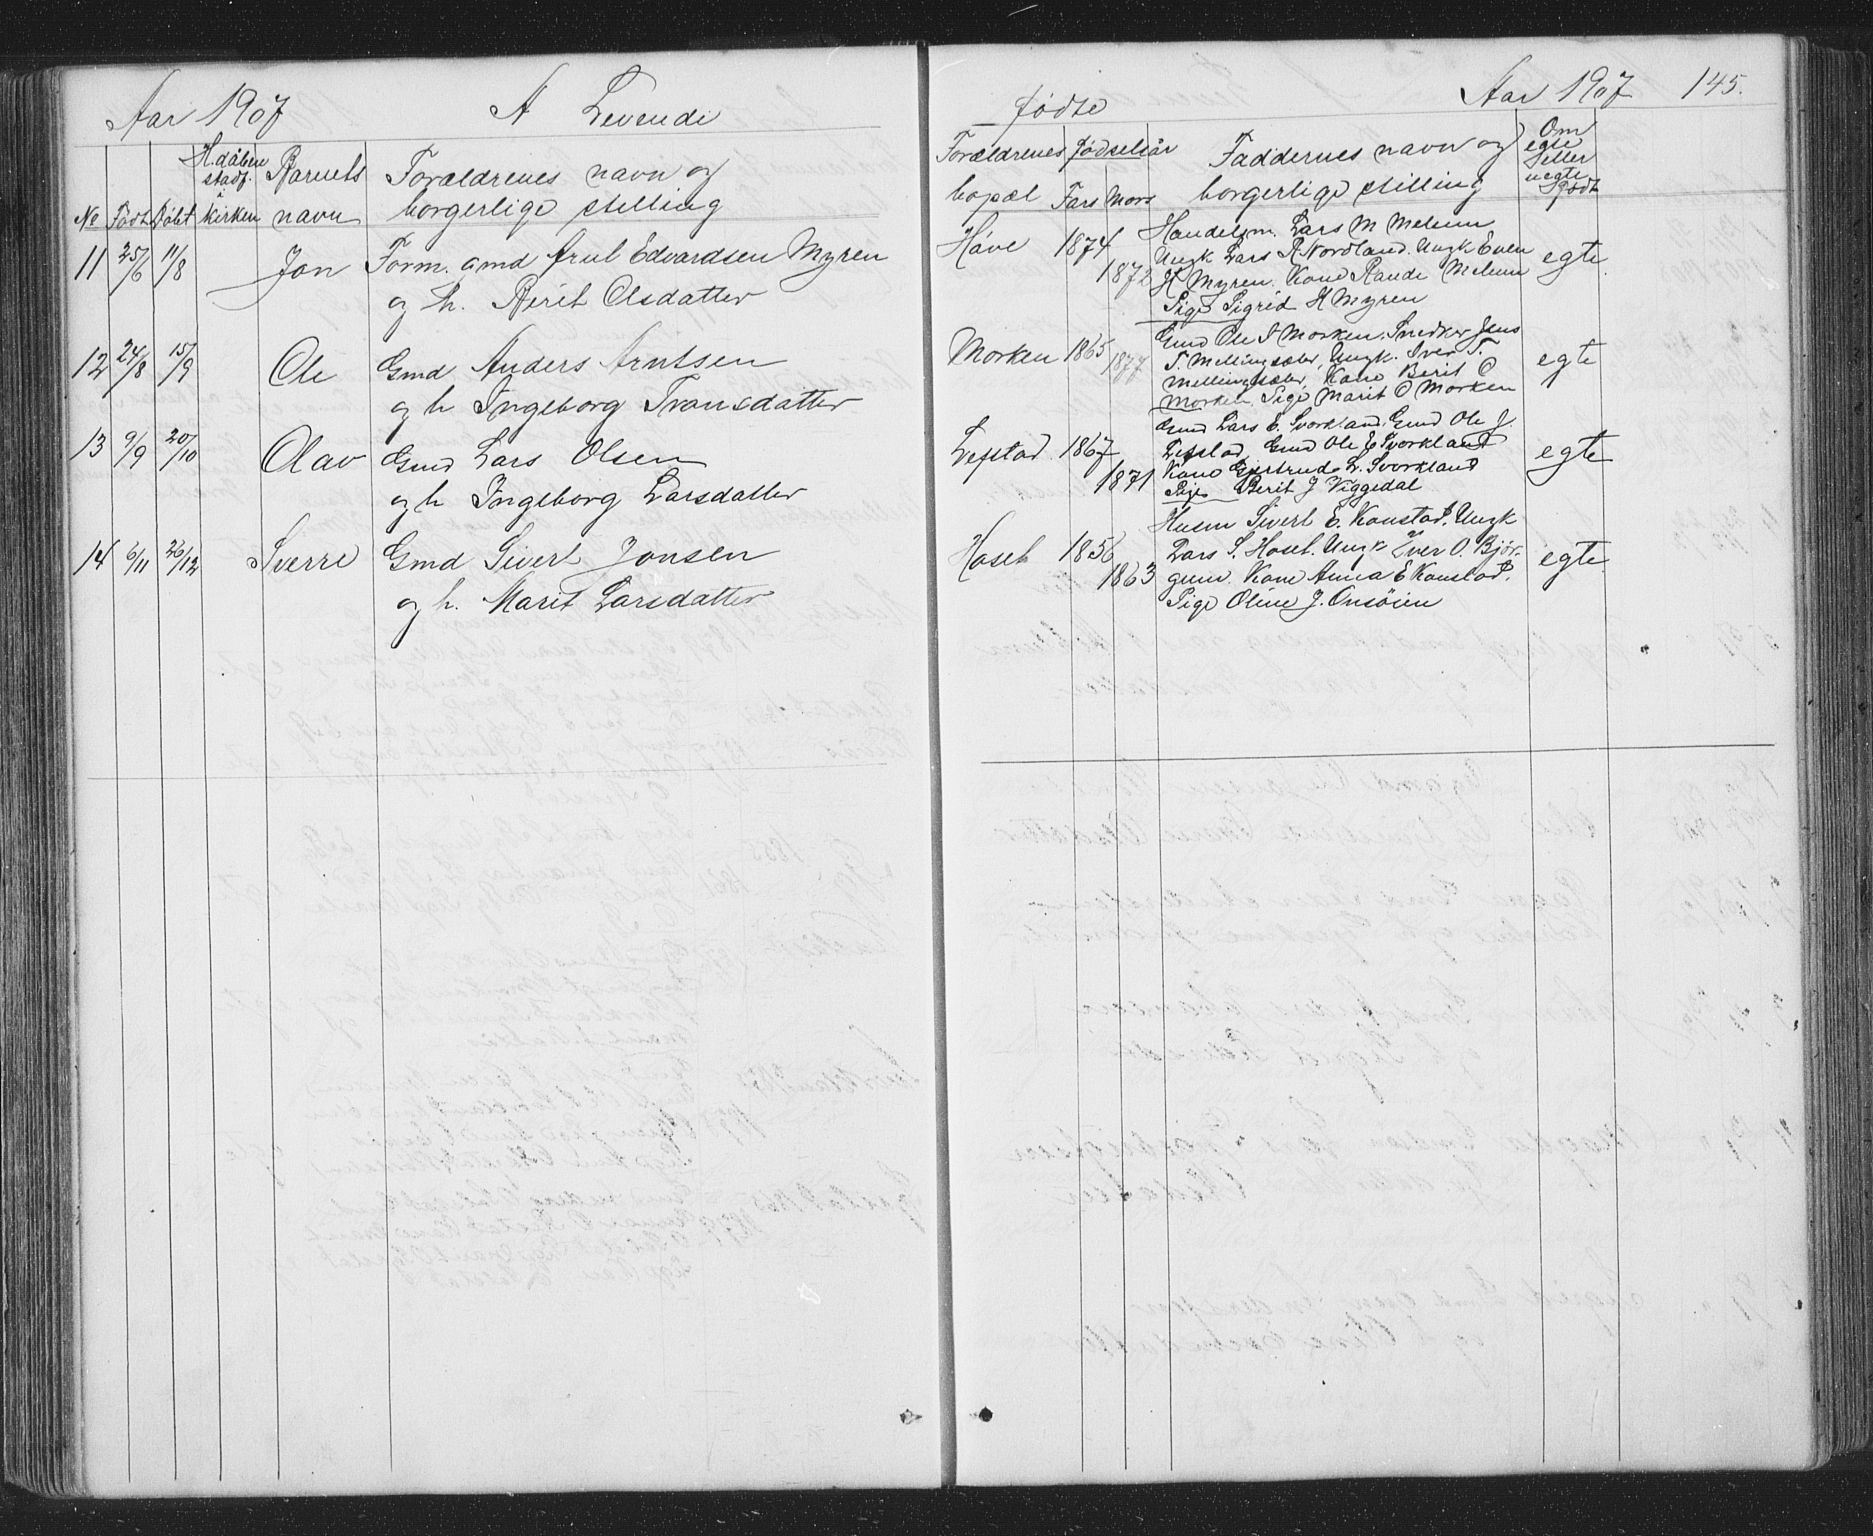 Aar 1907 A Levende
fødte Aar 1907 145.
No Født Døbt H.dåben stadf. i kirken Barnets navn Forældrenes navn og borgerlige stilling
Forældrenes bopæl Fødselsår Fars Mors Faddernes navn og borgerlige stilling Om egte eller uegte født
11 25/6 11/8 Jon Form. gmd Arnt Edvardsen Myren
og h. Berit Olsdatter
Håve 1874 1872
Handelsm. Lars M Melum
Ungk Lars P Nordland. Ungk Even
H Myren. Kone Melum
Pige Sigrid H Myren
egte
12 24/8 15/9 Ole Gmd Anders Arntsen
og h Ingeborg Tronsdatter
Morken 1865 1877
Gmd Ole I Morken. Snedker Jens
T. Mellingsæter, Ungk. Iver T.
Mellingsæter, Kone Berit O
Morken. Pige Marit O Morken
egte
13 9/9 20/10 Olav Gmd Lars Olsen
og h Ingeborg Larsdatter
Lefstad 1867 1871
Gmd Lars E. Svorkland. Gmd Ole J.
Lefstad. Gmd Ole E Svorkland
Kone Gjertrude L. Svorkland
Pige Berit J Viggedal
egte
14 6/11 26/12 Sverre Gmd Sivert Jonsen
og h. Marit Larsdatter
Hoset 1856 1863
Husm Sivert E. Konstad. Ungk
Lars S. Hoset. Ungk Iver O. Bjør-
gum. Kone Anna E Konstad.
Pige Oline J. Onsøien
egte